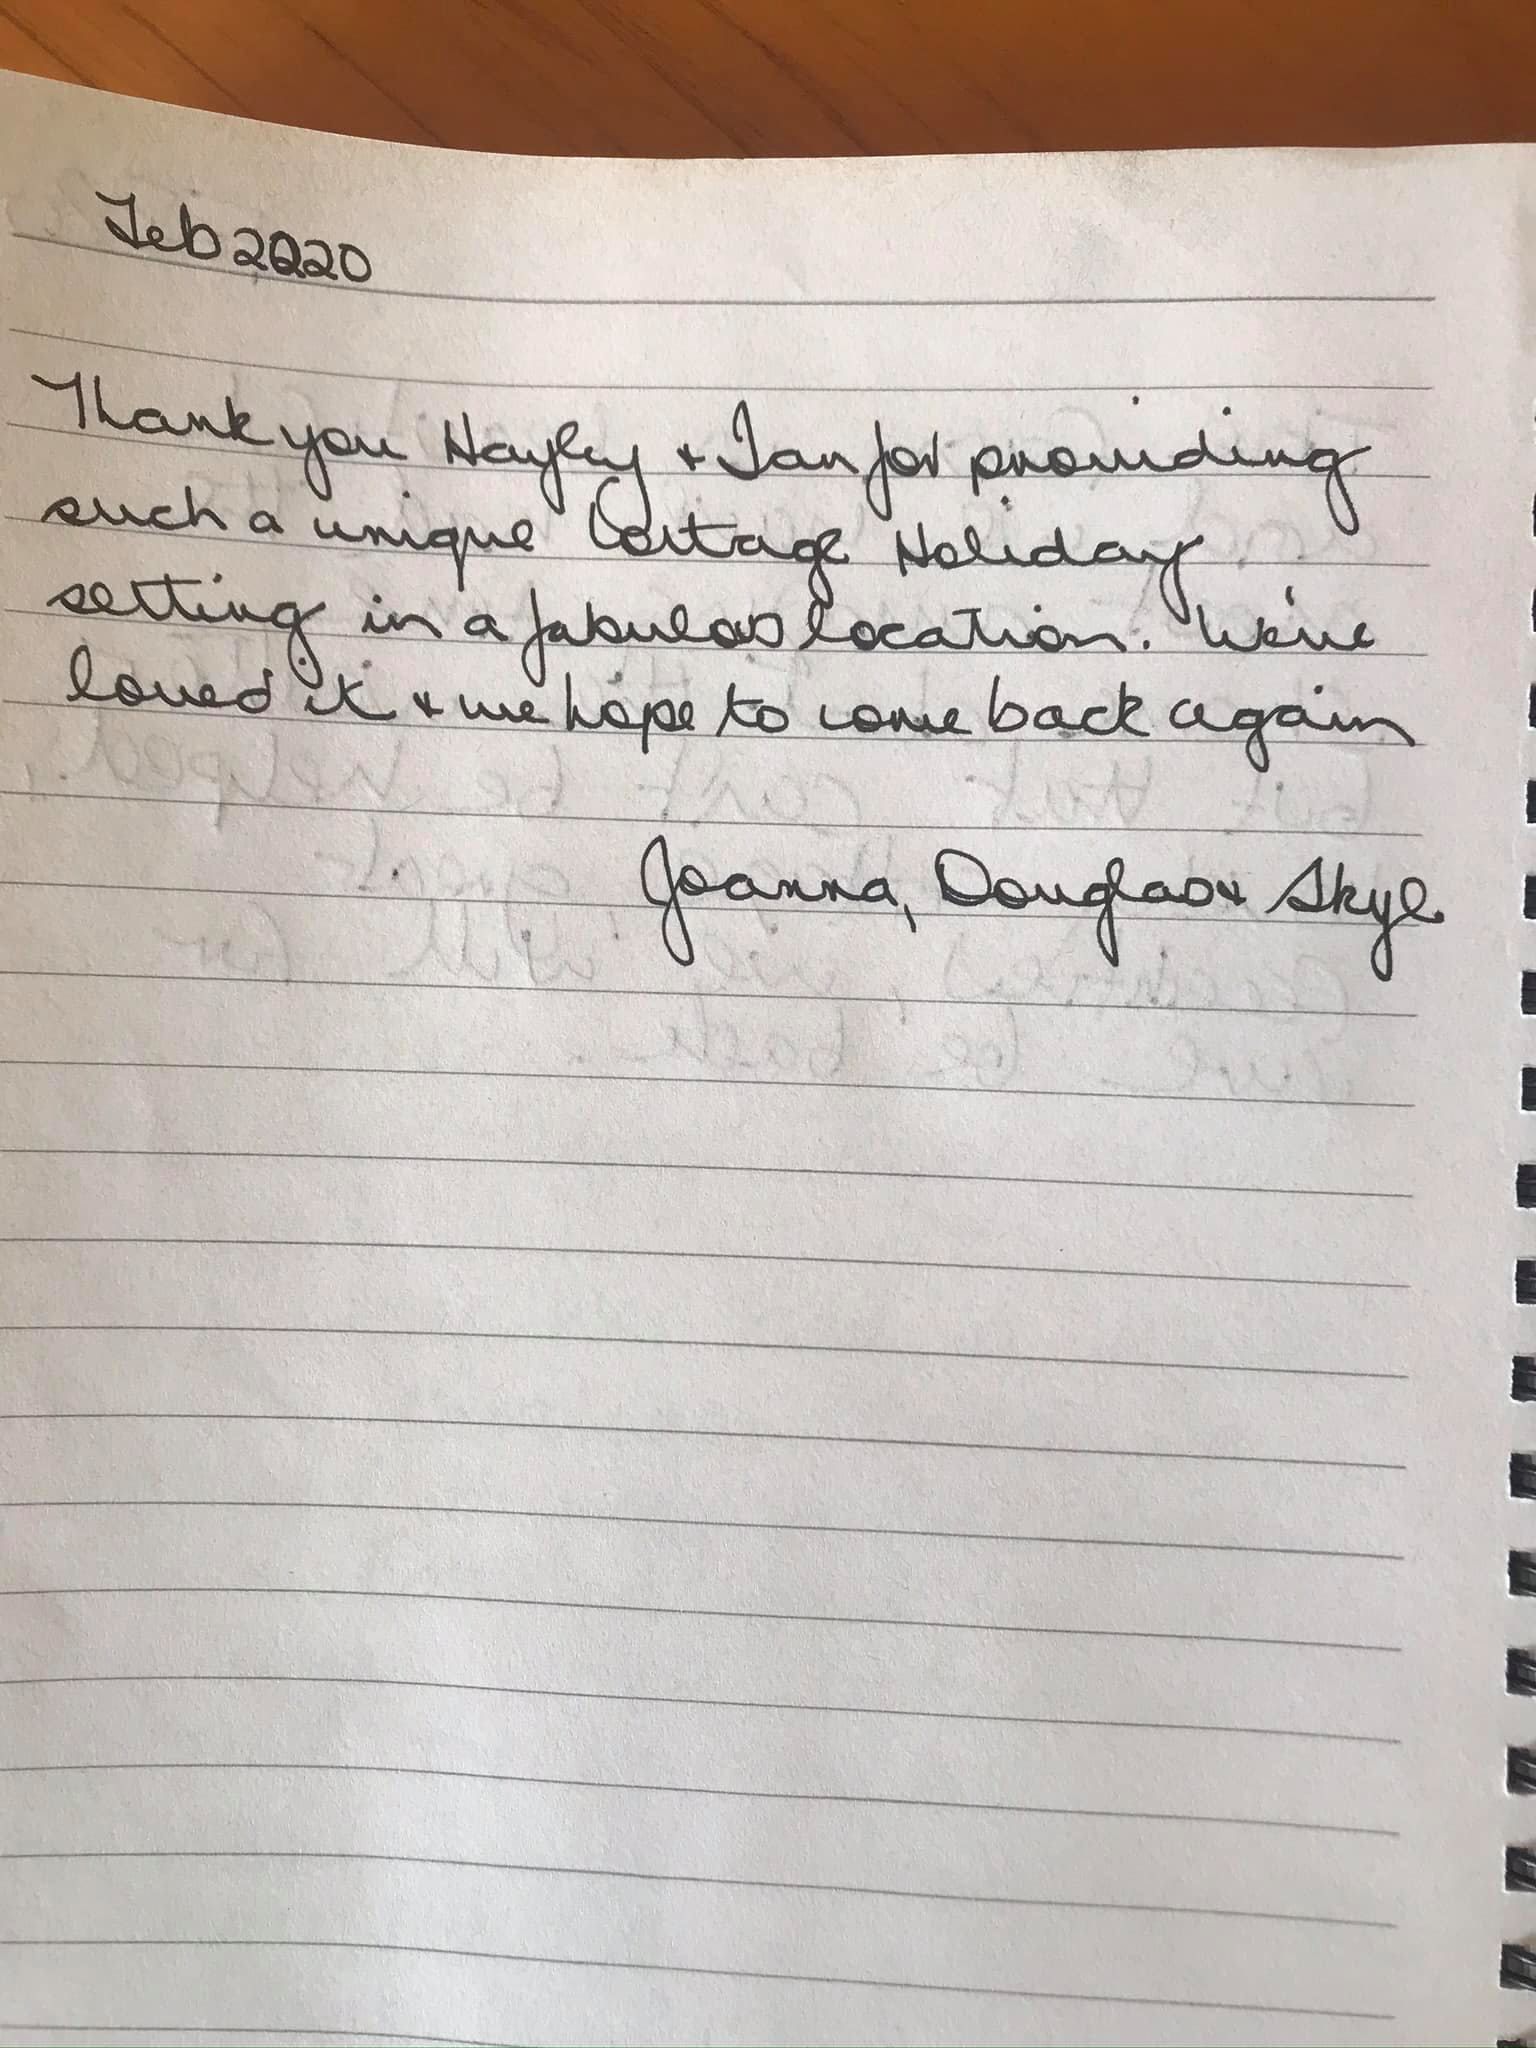 Feb 2020
Thank you Hayley & Ian for providing
such a unique Cottage Holiday
setting in a fabulous location. We've
loved it & we hope to come back again
Joanna, Douglas & Skye